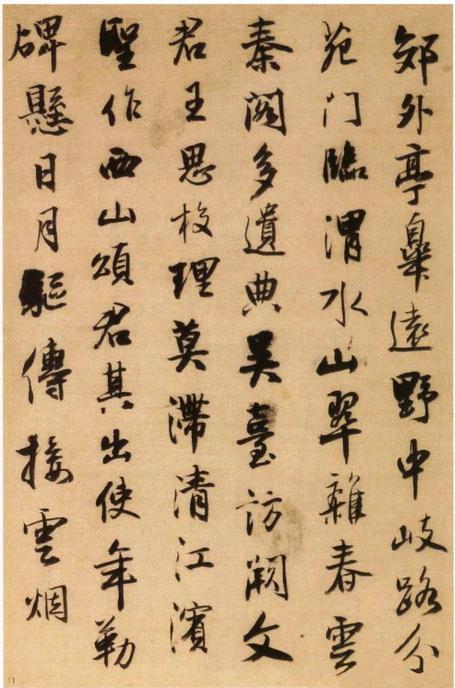 郊外亭皋遠野中岐路分
苑門臨渭水山翠雜春雲
秦閣多遺典吳臺訪闕文
君王思校理莫滯清江濱
聖作西山頌君其出使年勒
碑懸日月驅傳接雲烟